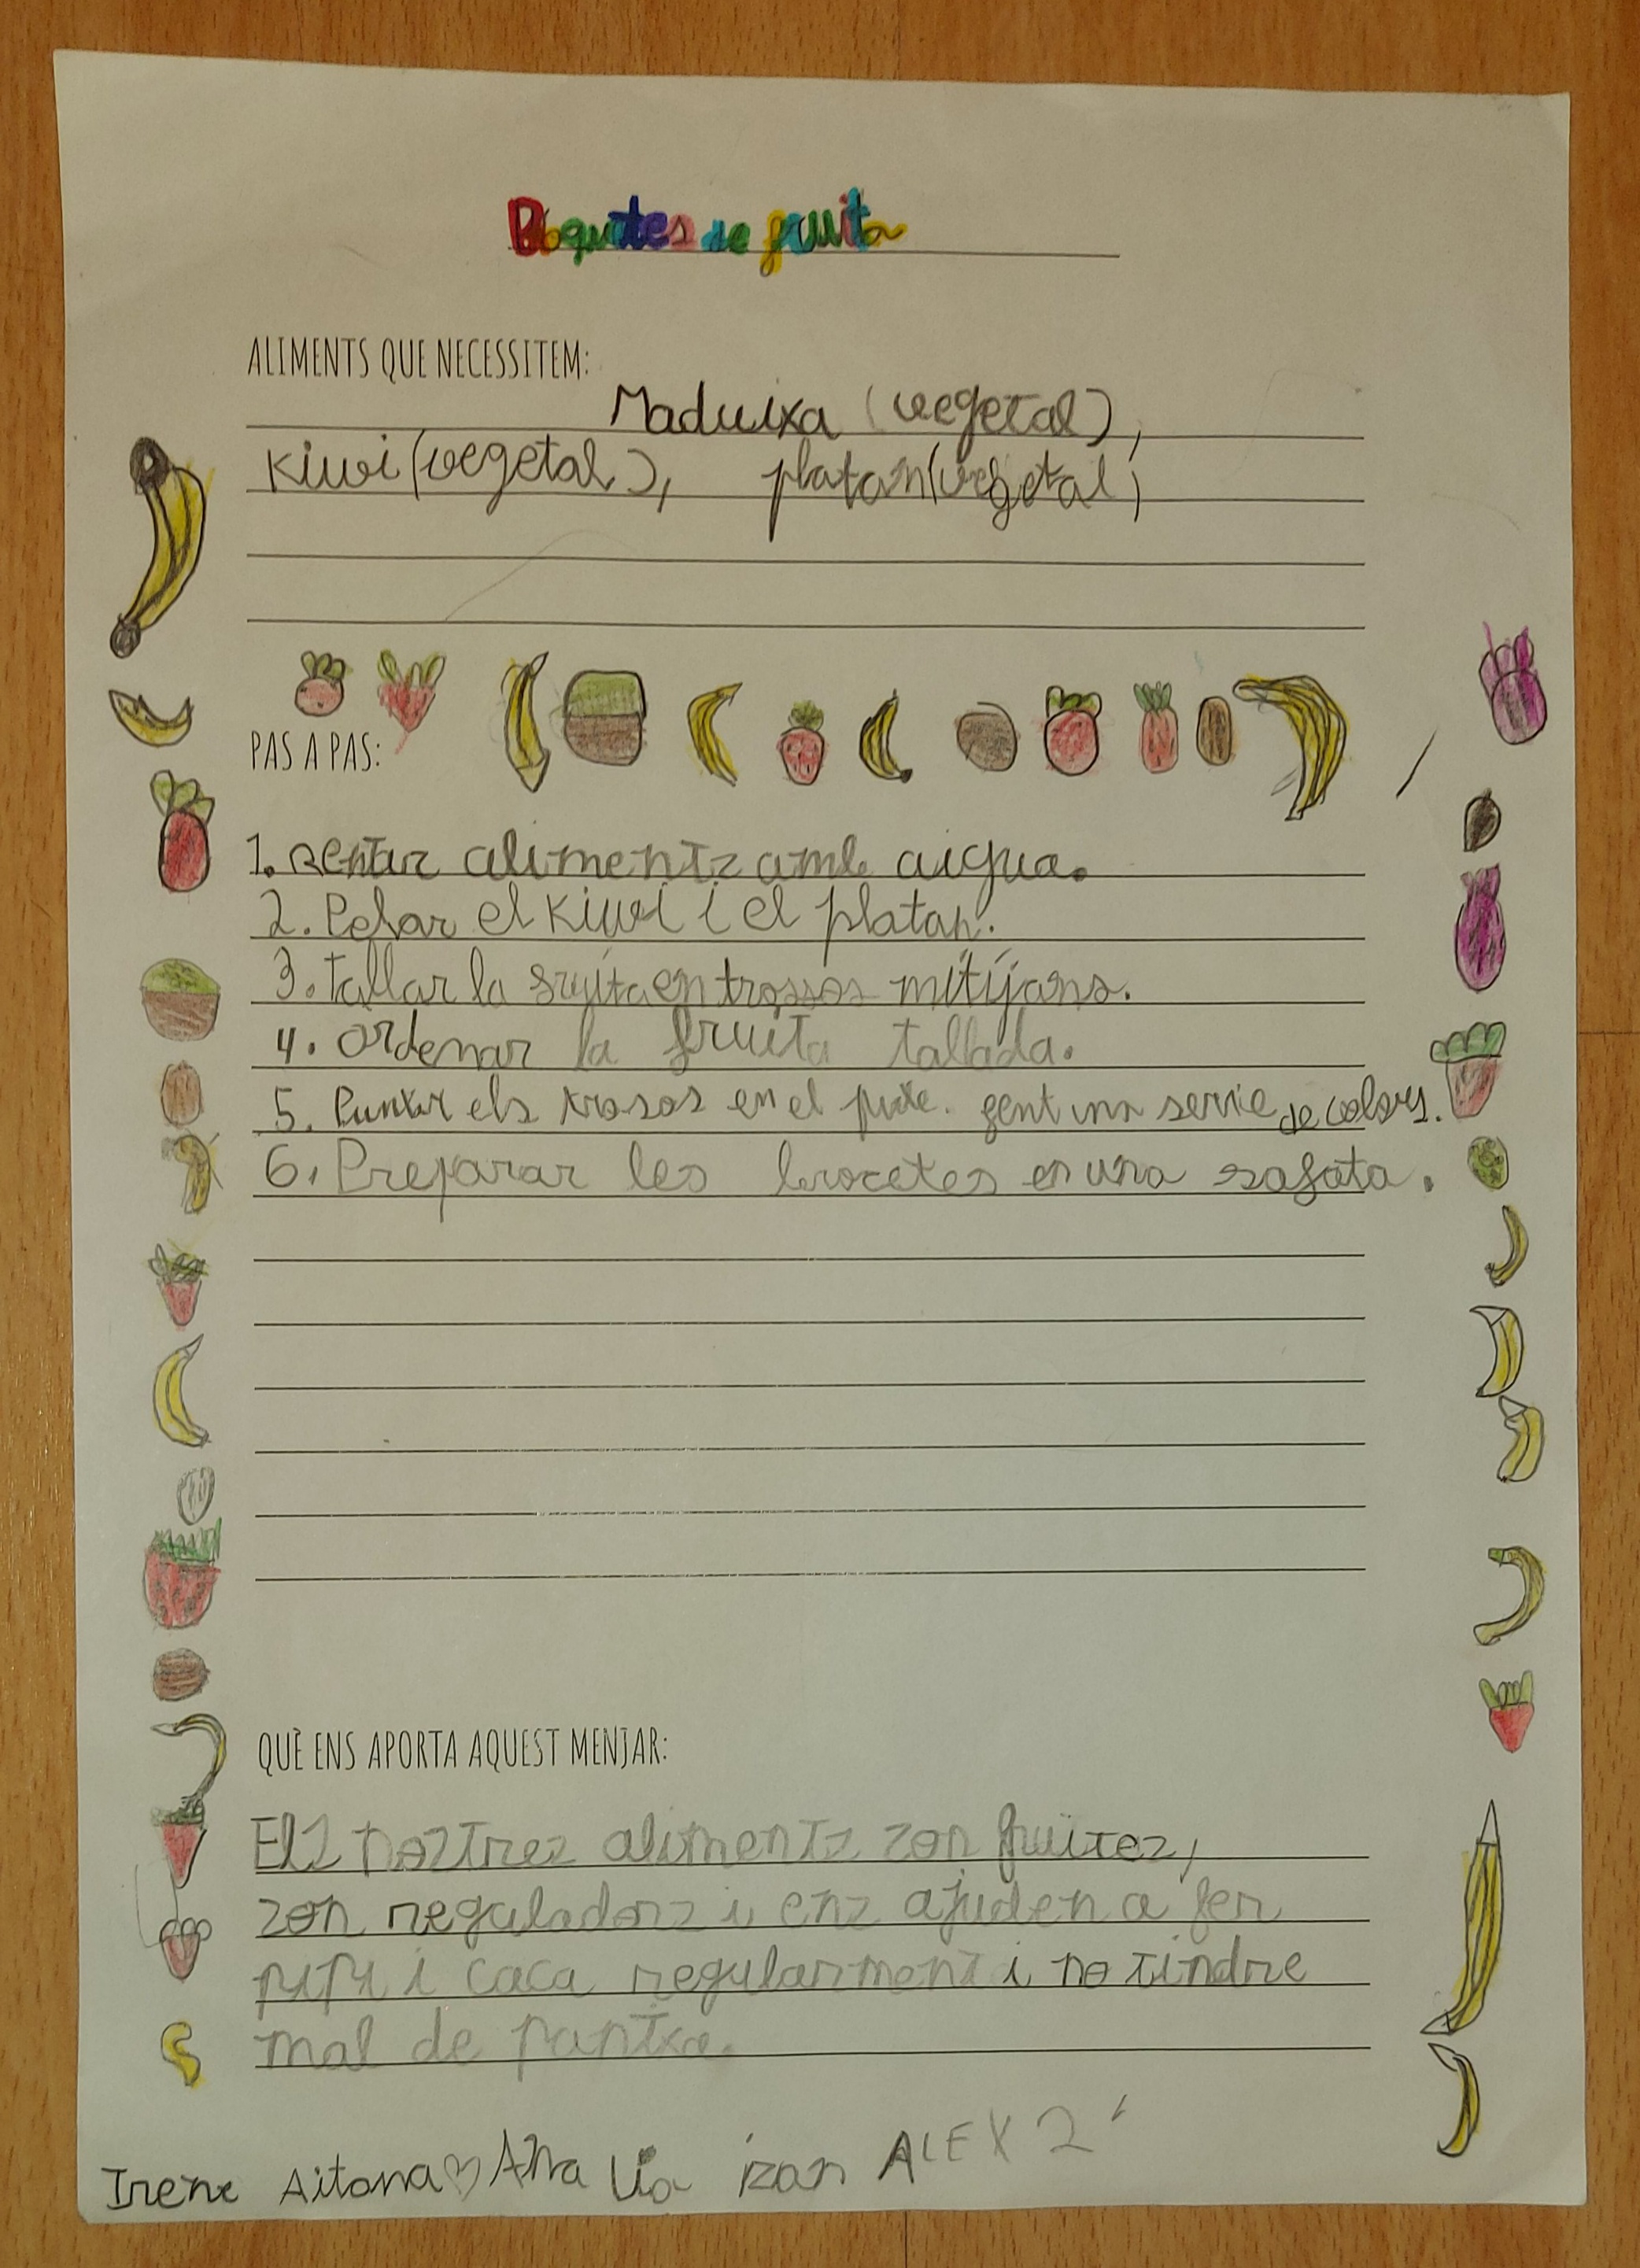 Boquetes de fruita
ALIMENTS QUE NECESSITEM:
Maduixa (vegetal),
Kiwi (vegetal), platan (vegetal)
PAS A PAS:
1. rentar alimentz amb aigua.
2. Pelar el kiwi i el platan.
3. tallar la sruita en trossos mitijans.
4. ordenar la fruita tallada.
5. Punxar els trosos en el gent una serrie de colors.
6. Preparar les brocetes en una zafata.
QUÈ ENS APORTA AQUEST MENJAR:
Elz noztrez alimentz zon fruitez,
zon reguladorz i enz ajuden a fer
pipi i caca regularment i no tindre
mal de pantxa.
Irene Aitana Aina Lia izan ALEX 2